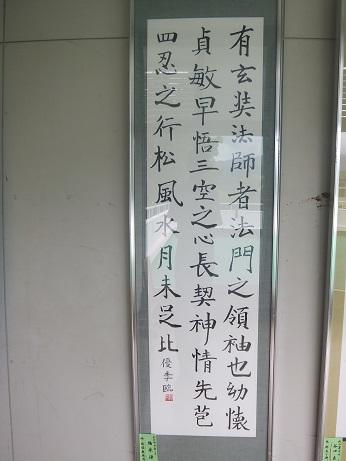 有玄奘法師者法門之領袖也幼懐
貞敏早悟三空之心長契神情先苞
四忍之行松風水月未足比
優季臨